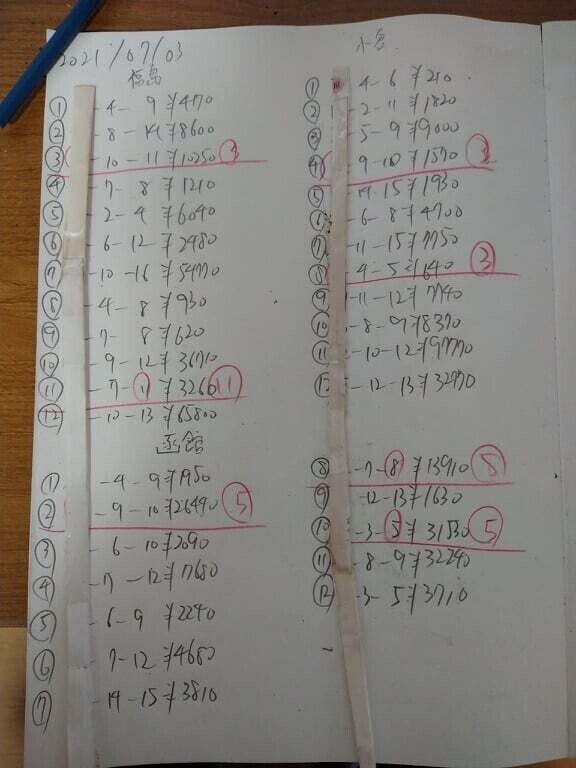 2021/07/03
福島
① -4-9 ¥4170
② -8-14 ¥8600
③ -10-11 ¥10250 ③
④ -7-8 ¥1210
⑤ -2-4 ¥6040
⑥ -6-12 ¥2480
⑦ -10-16 ¥54770
⑧ -4-8 ¥930
⑨ -7-8 ¥620
⑩ -9-12 ¥36710
⑪ -7-11 ¥3260 ⑪
⑫ -10-13 ¥65800
函館
① -4-9 ¥1950
② -9-10 ¥26490 ⑤
③ -6-10 ¥2090
④ -7-12 ¥7680
⑤ -6-9 ¥2240
⑥ 7-12 ¥4680
⑦ -14-15 ¥3810
小倉
① -4-6 ¥210
② -2-11 ¥1820
③ -5-9 ¥9000
④ 9-10 ¥1570 ③
⑤ -14-15 ¥1930
⑥ -6-8 ¥4700
⑦ -11-15 ¥7750
⑧ -4-5 ¥640 ③
⑨ -11-12 ¥7740
⑩ -8-9 ¥8370
⑪ -10-12 ¥97770
⑫ -12-13 ¥3270
⑧ -7-8 ¥13910 ⑧
⑨ -12-13 ¥1630
⑩ -3-5 ¥31530 ⑤
⑪ -8-9 ¥32240
⑫ -3-5 ¥3710